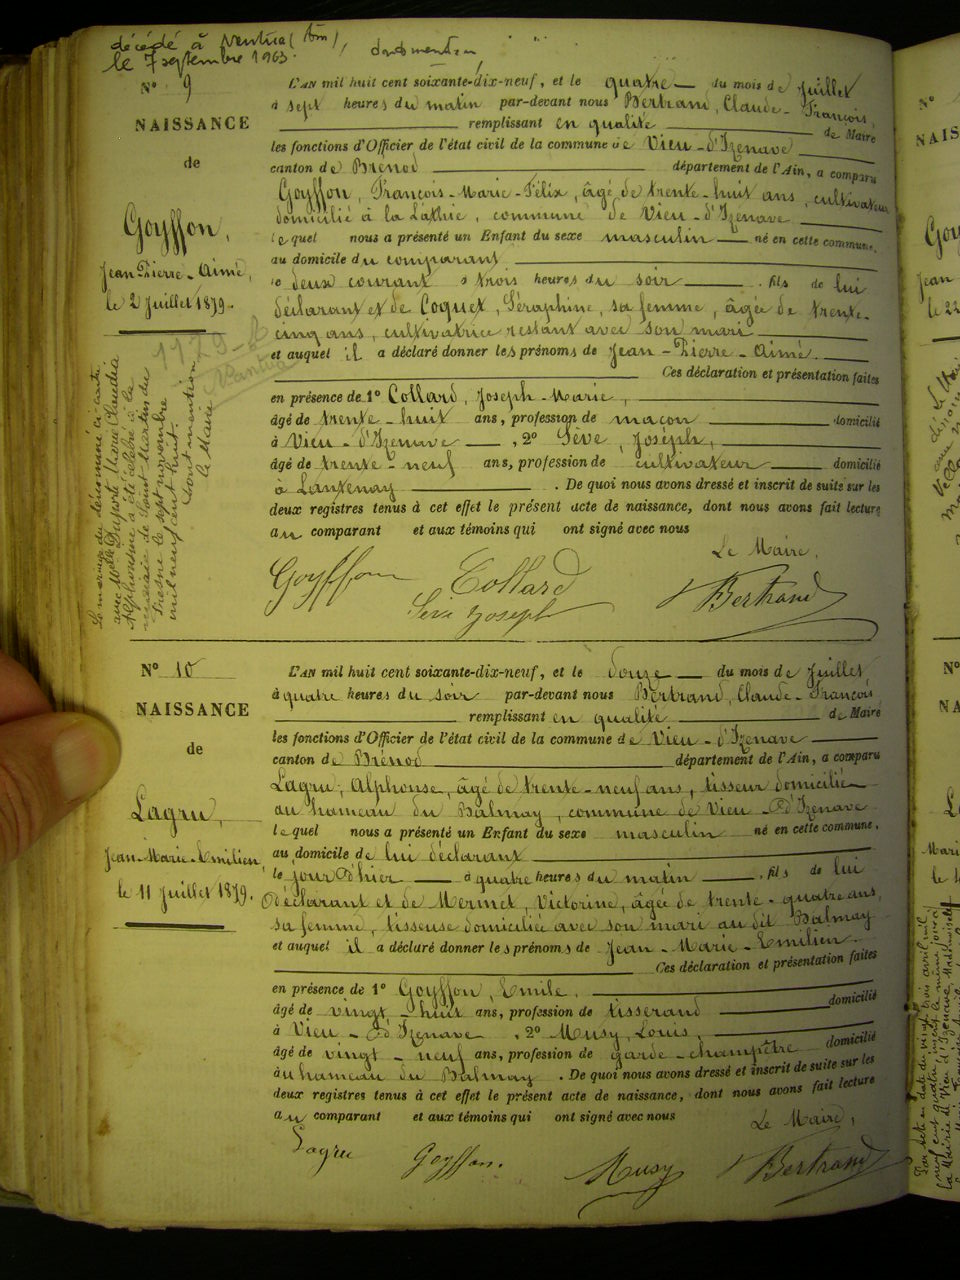 décédé à Nantua (Ain),
le 7 septembre 1963. dont mention
N° 9
NAISSANCE
de
Goyffon,
Jean-Pierre-Aimé,
le 2 Juillet 1879.
1129-
Nantua
Le mariage du dénommé ci-contre
avec Melle Duport Marie Claudia
Alphonsine a été célébré à la
mairie de Saint-Martin du
Fresne le sept novembre
mil neuf cent huit.
Dont mention
Le Maire
L'AN mil huit cent soixante-dix-neuf, et le quatre du mois de Juillet
à sept heures du matin par-devant nous Bertrand, Claude-François,
remplissant en qualité de Maire
les fonctions d'Officier de l'état civil de la commune de Vieu-d'Izenave
canton de Brénod département de l'Ain, a comparu
Goyffon, François-Marie-Félix, âgé de trente-huit ans, cultivateur
domicilié à la commune de Vieu-d'Izenave
lequel nous a présenté un Enfant du sexe masculin né en cette commune,
au domicile du comparant
le deux courant à trois heures du soir, fils de lui
déclarant et de Coquet, Séraphine, sa femme, âgée de trente-
cinq ans, cultivatrice restant avec son mari
et auquel il a déclaré donner les prénoms de Jean-Pierre-Aimé.
Ces déclaration et présentation faites
en présence de 1° Collard, Joseph-Marie,
âgé de trente-huit ans, profession de maçon domicilié
à Vieu-d'Izenave, 2° Sève, Joseph,
âgé de trente-neuf ans, profession de cultivateur domicilié
à Lantenay. De quoi nous avons dressé et inscrit de suite sur les
deux registres tenus à cet effet le présent acte de naissance, dont nous avons fait lecture
au comparant et aux témoins qui ont signé avec nous
Le Maire,
Goyffon Collard
Sève Joseph Bertrand
N° 10
NAISSANCE
de
Lagru,
Jean-Marie-Emilien
le 11 Juillet 1879.
L'AN mil huit cent soixante-dix-neuf, et le douze du mois de Juillet
à quatre heures du soir par-devant nous Bertrand, Claude-François
remplissant en qualité de Maire
les fonctions d'Officier de l'état civil de la commune de Vieu-d'Izenave
canton de Brénod département de l'Ain, a comparu
Lagru, Alphonse, âgé de trente-neuf ans, tisseur domicilié
au hameau du Balmay, commune de Vieu-d'Izenave
lequel nous a présenté un Enfant du sexe masculin né en cette commune,
au domicile de lui déclarant
le jour d'hier à quatre heures du matin, fils de lui
déclarant et de Mermet, Victorine, âgée de trente-quatre ans,
sa femme, tisseuse domiciliée avec son mari au dit Balmay
et auquel il a déclaré donner les prénoms de Jean-Marie-Emilien.
Ces déclaration et présentation faites
en présence de 1° Goyffon, Emile,
âgé de vingt-huit ans, profession de tisserand domicilié
à Vieu-d'Izenave, 2° Musy, Louis,
âgé de vingt-neuf ans, profession de garde-champêtre domicilié
au hameau du Balmay. De quoi nous avons dressé et inscrit de suite sur les
deux registres tenus à cet effet le présent acte de naissance, dont nous avons fait lecture
au comparant et aux témoins qui ont signé avec nous
Le Maire,
Lagru Goyffon. Musy Bertrand
N°
NAIS